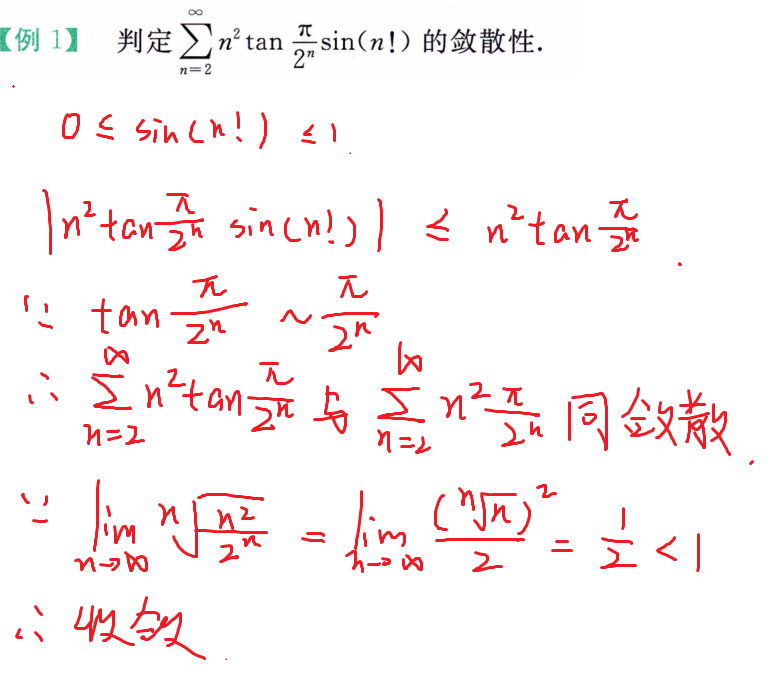 【例 1】 判定 $\sum_{n=2}^{\infty} n^2 \tan \frac{\pi}{2^n} \sin(n!)$ 的敛散性.
$0 \leq \sin(n!) \leq 1$
$\left| n^2 \tan \frac{\pi}{2^n} \sin(n!) \right| \leq n^2 \tan \frac{\pi}{2^n}$
∵ $\tan \frac{\pi}{2^n} \sim \frac{\pi}{2^n}$
∴ $\sum_{n=2}^{\infty} n^2 \tan \frac{\pi}{2^n}$ 与 $\sum_{n=2}^{\infty} n^2 \frac{\pi}{2^n}$ 同敛散
∵ $\lim_{n \to \infty} \sqrt[n]{\frac{n^2}{2^n}} = \lim_{n \to \infty} \frac{(\sqrt[n]{n})^2}{2} = \frac{1}{2} < 1$
∴ 收敛